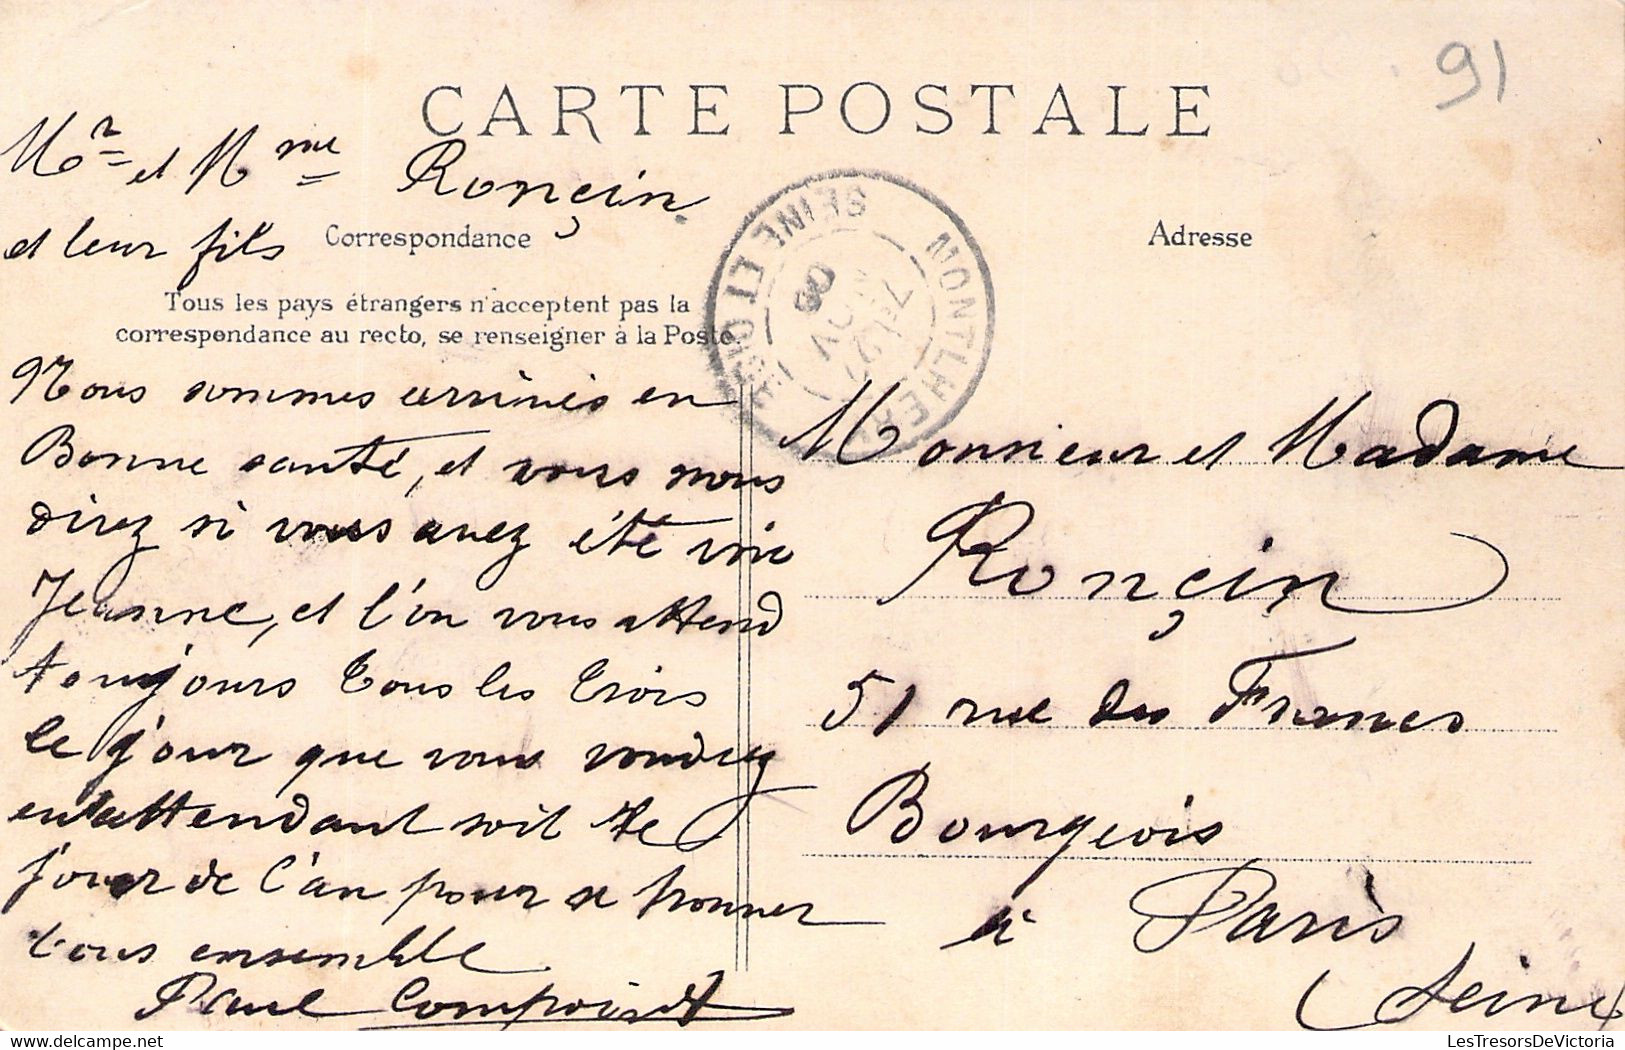 91
CARTE POSTALE
Mr et Mme Ronçin
et leur fils
Correspondance
Adresse
Tous les pays étrangers n'acceptent pas la
correspondance au recto, se renseigner à la Poste
MONTLHERY
SEINE ET OISE
Nous sommes arrivés en
Bonne santé, et vous nous
direz si vous avez été voir
Jeanne, et l'on vous attend
toujours tous les trois
le jour que vous voudrez
en attendant soit le
jour de l'an pour se trouver
tous ensemble
Paul
Monsieur et Madame
Ronçin
51 rue des Francs
Bourgeois
à Paris
(Seine)
LesTresorsDeVictoria